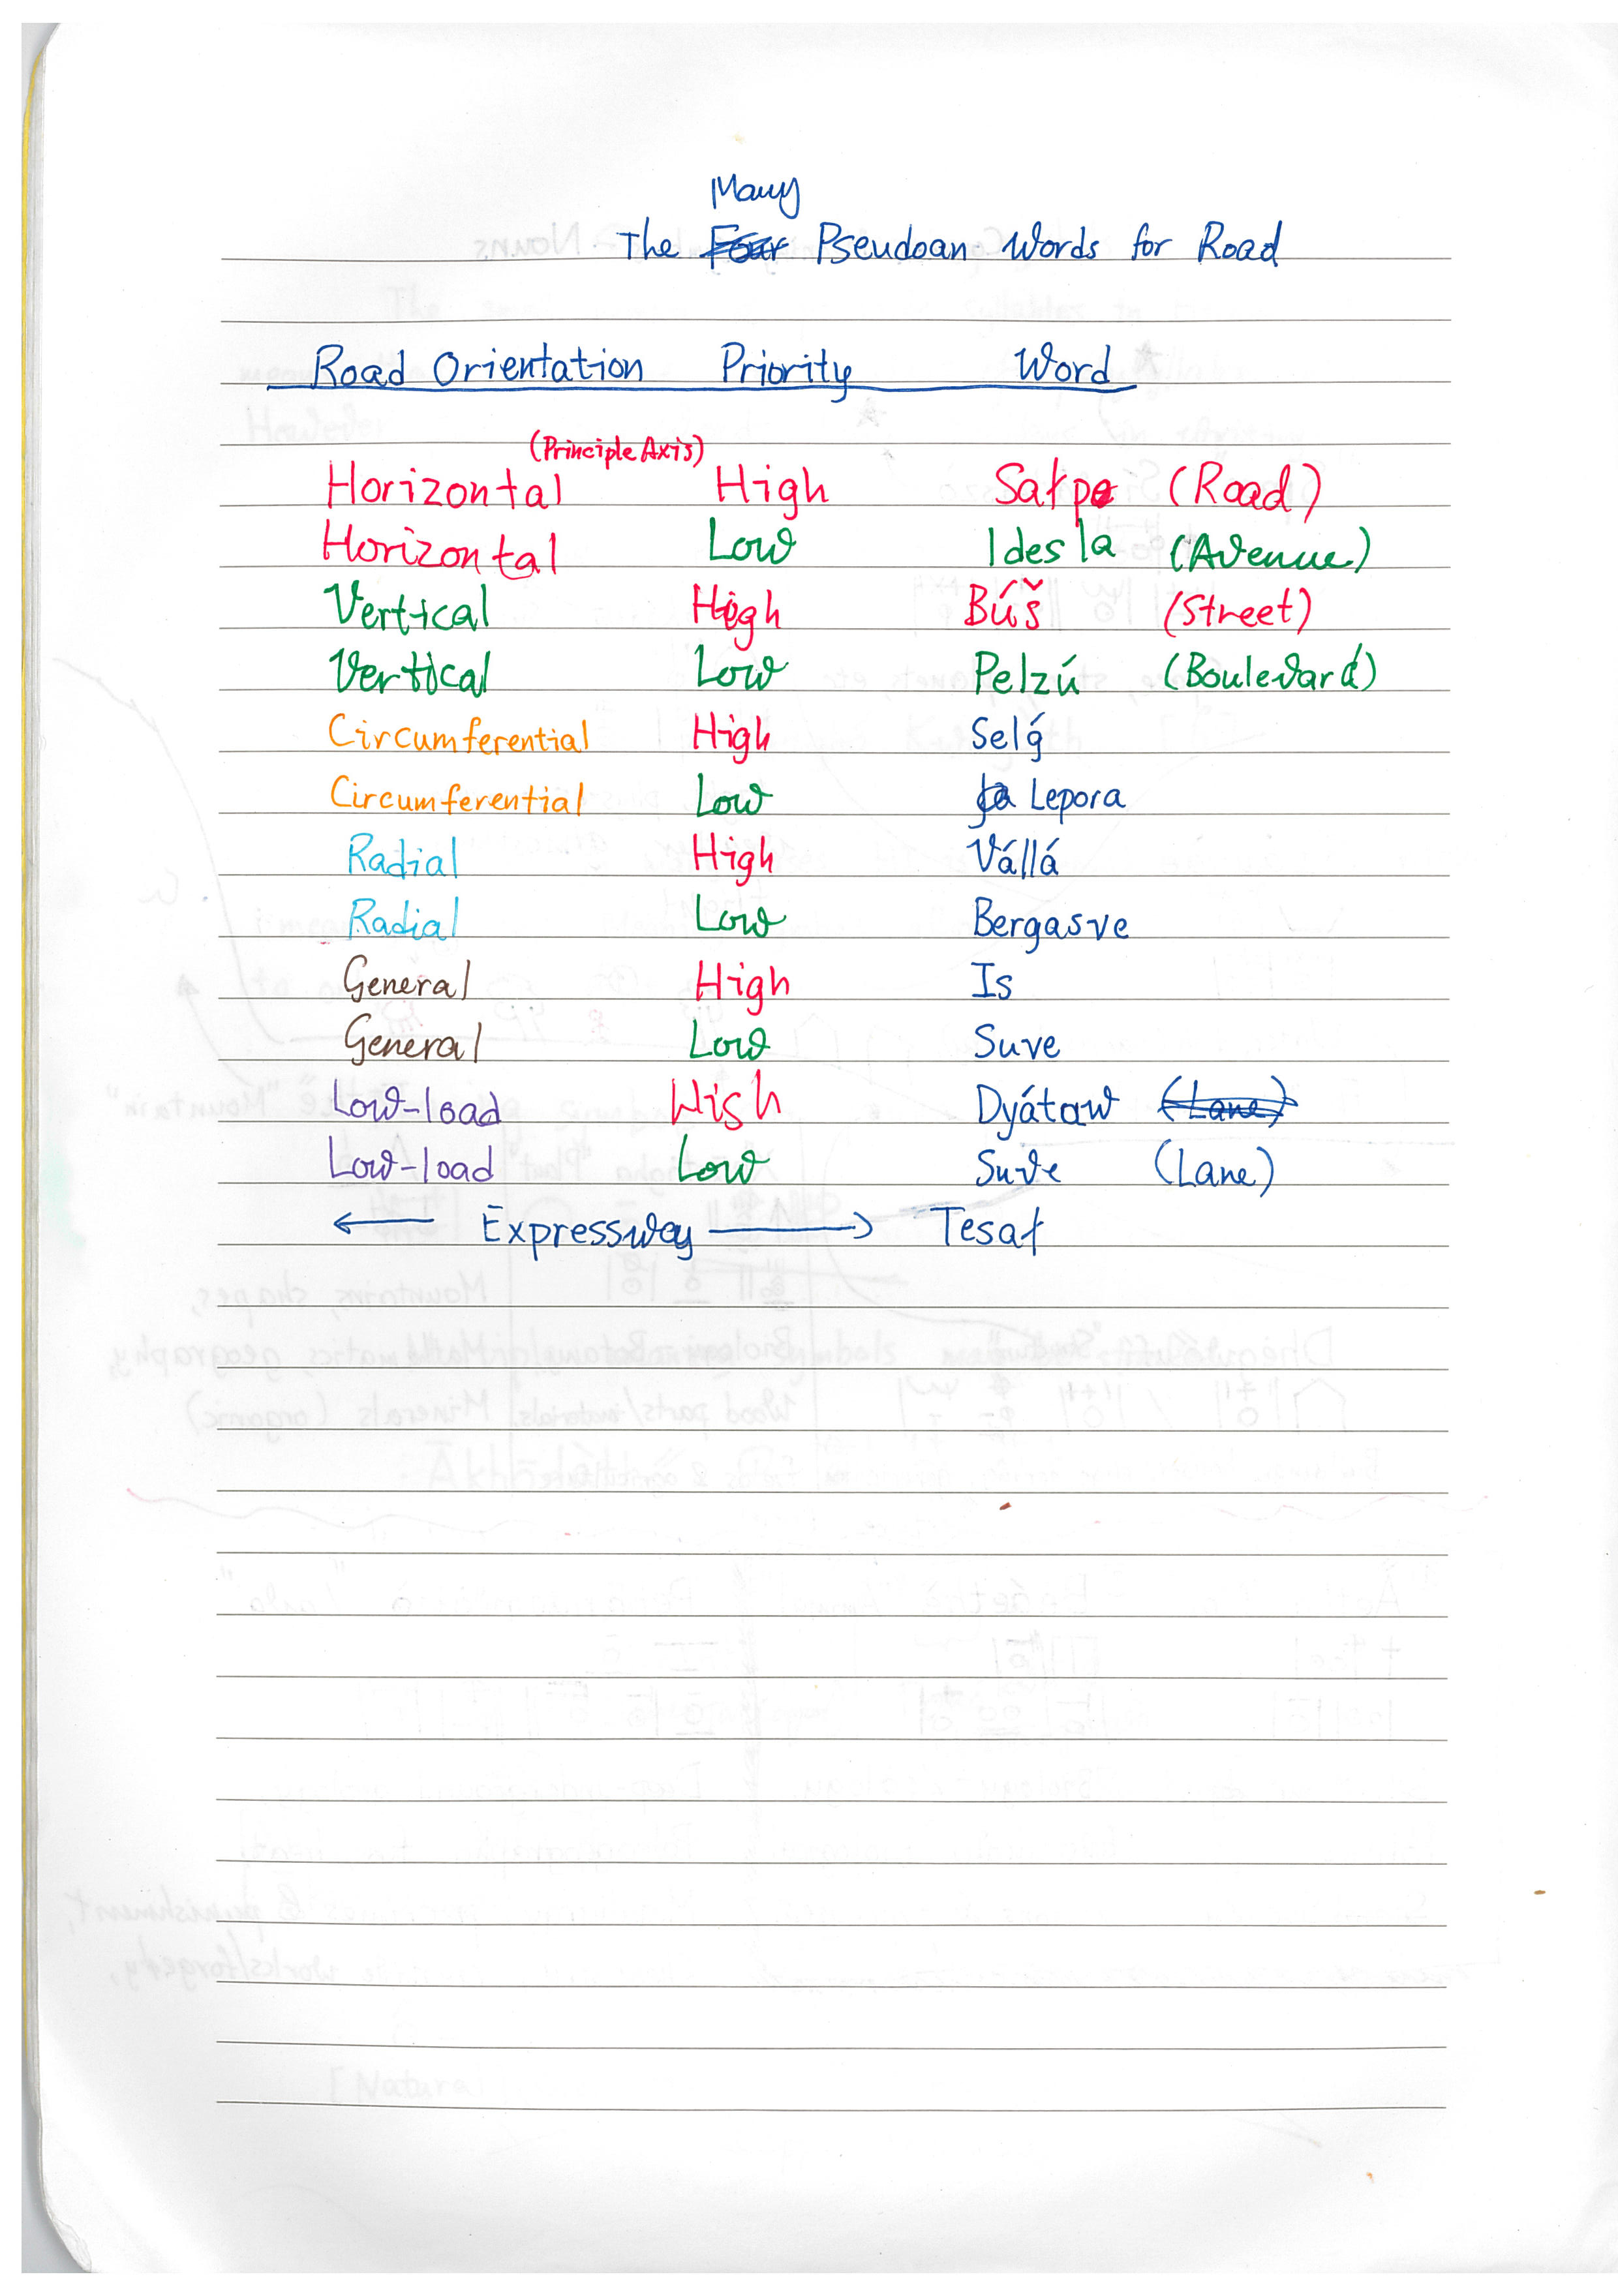 Many
The Four Pseudoan Words for Road
Road Orientation Priority Word
(Principle Axis)
Horizontal High Satpe (Road)
Horizontal Low Idesla (Avenue)
Vertical High Búš (Street)
Vertical Low Pelzú (Boulevard)
Circumferential High Selǵ
Circumferential Low Lepora
Radial High Vállá
Radial Low Bergasve
General High Is
General Low Suve
Low-load High Dyátaw (Lane)
Low-load Low Suve (Lane)
← Expressway → Tesat